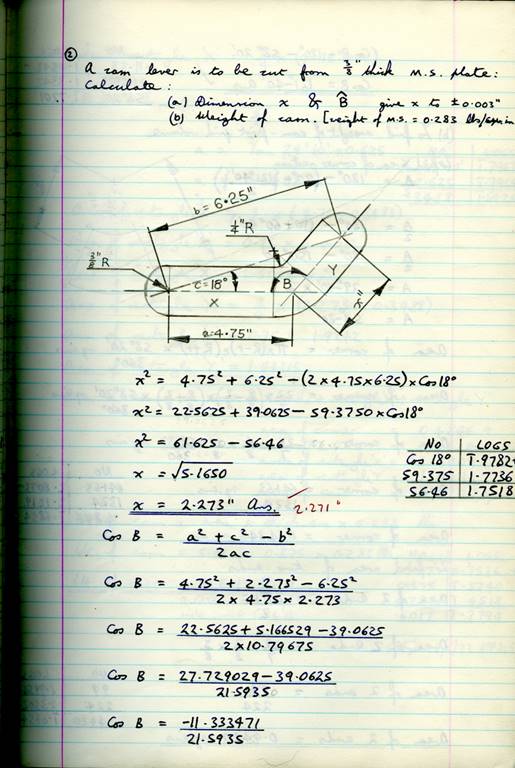 ②
A cam lever is to be cut from 3/8" thick M.S. plate:
Calculate:
(a) Dimension x & B̂ give x to ± 0.003"
(b) Weight of cam. [weight of M.S. = 0.283 lbs/
b = 6.25"
1/4" R
3/8" R
c = 18°
B
Y
X
x"
a = 4.75"
x² = 4.75² + 6.25² - (2 × 4.75 × 6.25) × Cos 18°
x² = 22.5625 + 39.0625 - 59.3750 × Cos 18°
x² = 61.625 - 56.46
x = √5.1650
x = 2.273" Ans. 2.271"
No LOGS
Cos 18° 1̅.9782
59.375 1.7736
56.46 1.7518
Cos B = a² + c² - b² / 2ac
Cos B = 4.75² + 2.273² - 6.25² / 2 × 4.75 × 2.273
Cos B = 22.5625 + 5.166529 - 39.0625 / 2 × 10.79675
Cos B = 27.729029 - 39.0625 / 21.5935
Cos B = -11.333471 / 21.5935